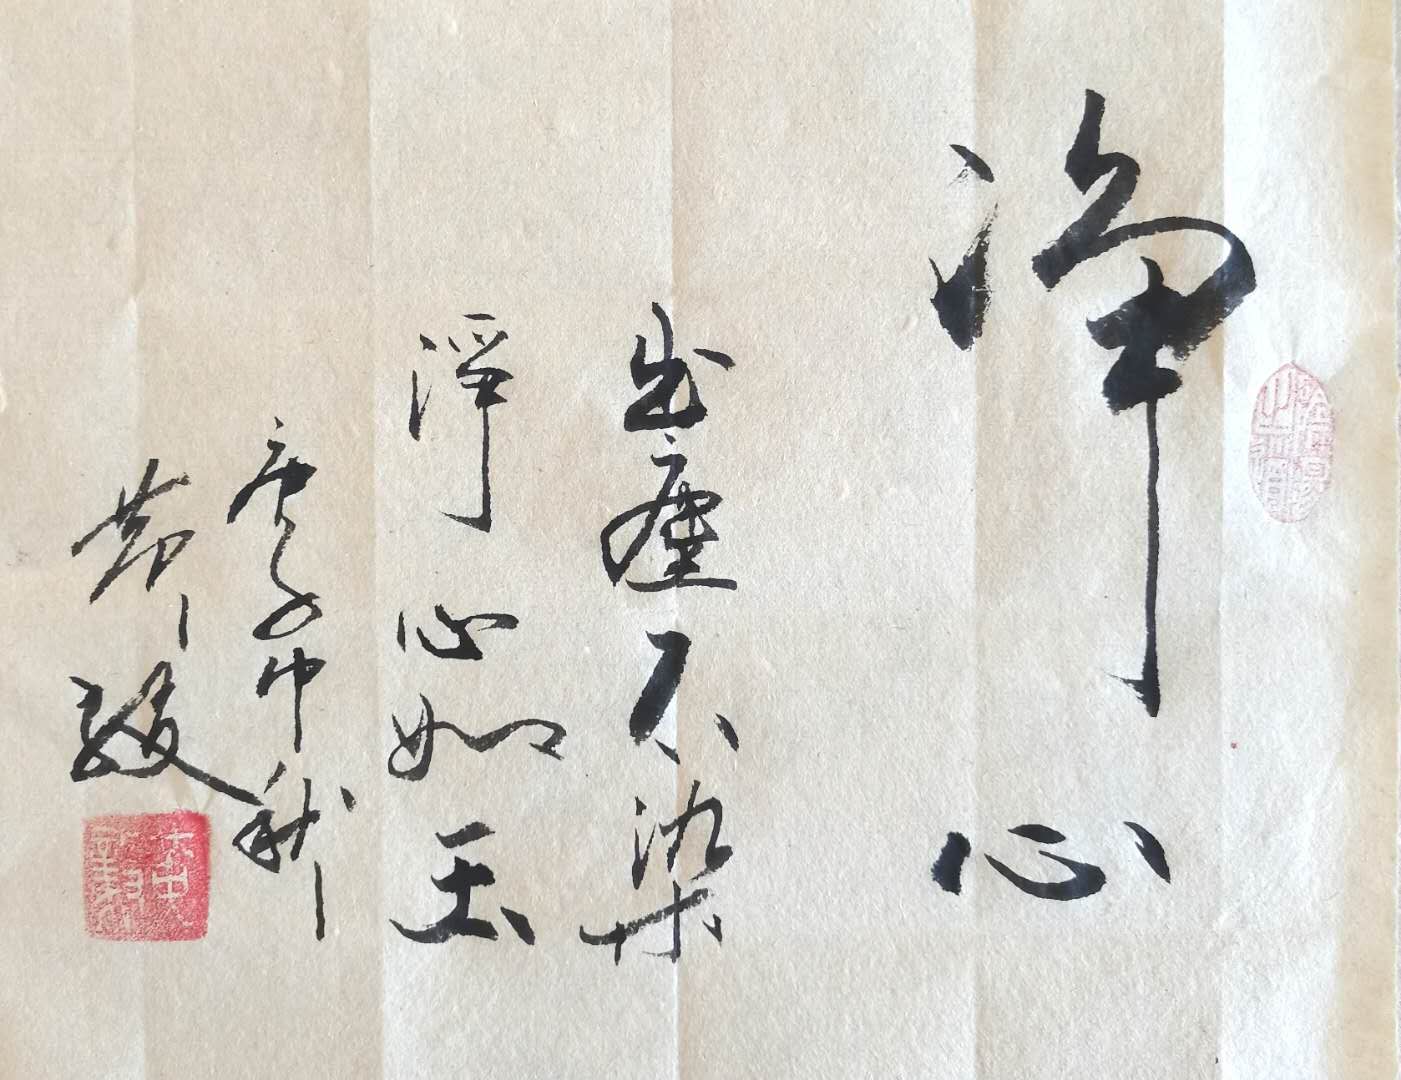 净心
出尘不染
淨心如玉
庚子中秋